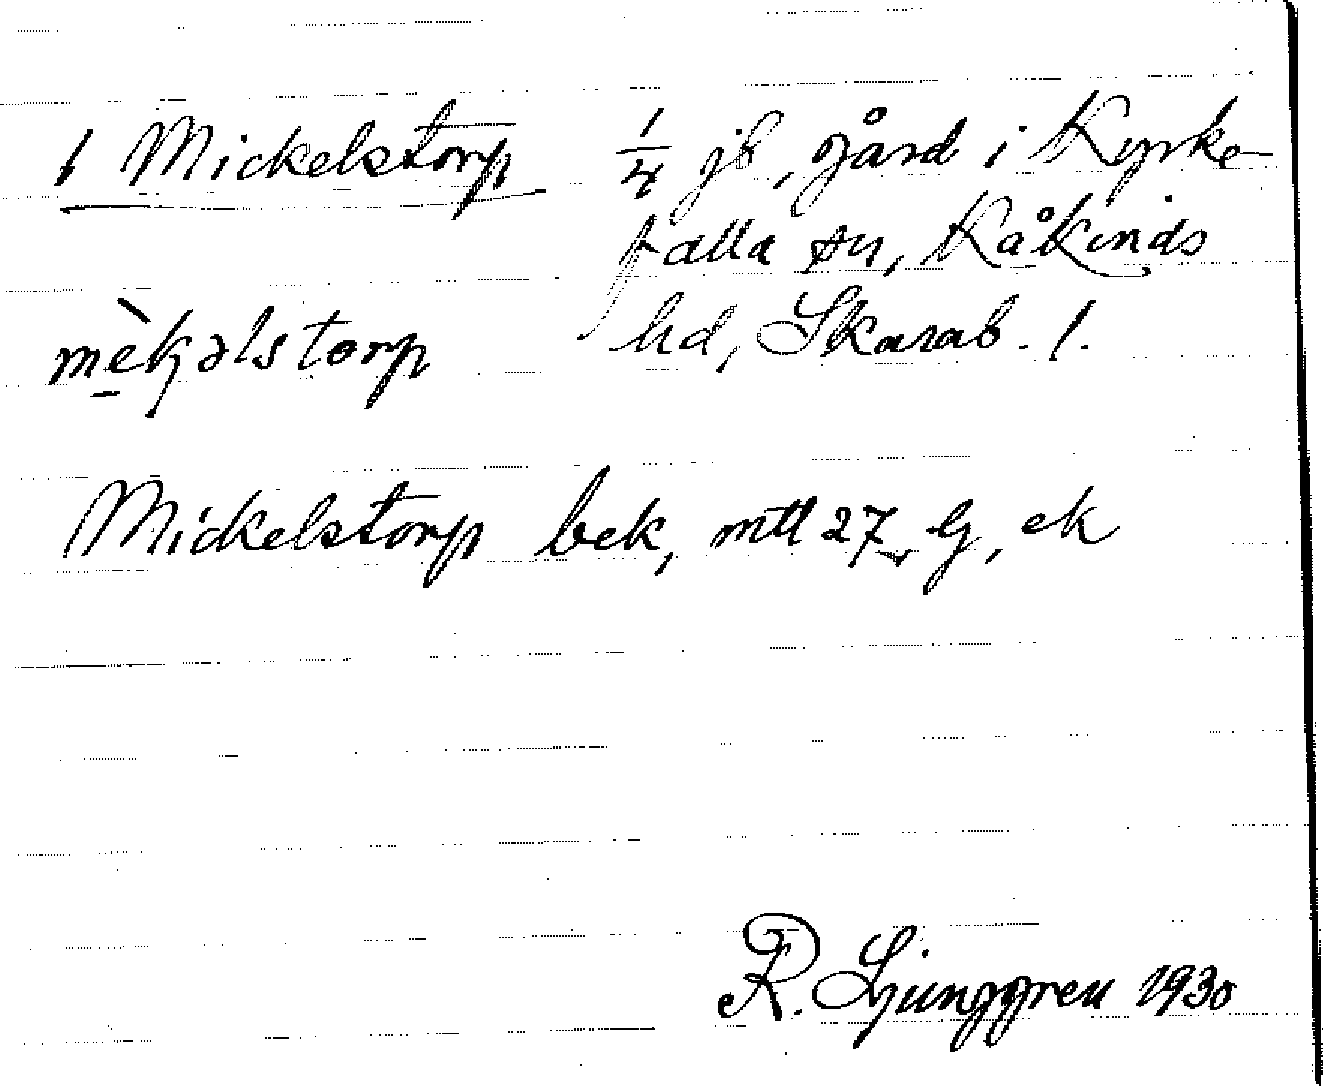 1 Mickelstorp 1/4 jb, gård i Kyrke-
falla sn, Kåkinds
mèkəlstorp hd, Skarab. l.
Mickelstorp bek, mtl 27, Lj, ek
R. Ljunggren 1930